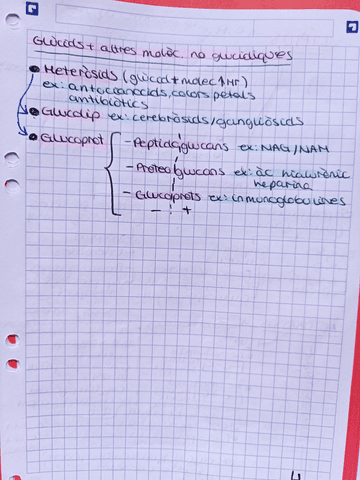 Glúcids + altres molèc. no glucídiques
Heteròsids (glúcid + molec ↑Mr)
ex: antocianòcids, colors pètals
antibiòtics
Glucolíp ex: cerebròsids/gangliòsids
Glucoprot
- Peptidoglucans ex: NAG/NAM
- Proteoglucans ex: àc hialurònic
heparina
- Glucoprots ex: inmunoglobulines
- +
4